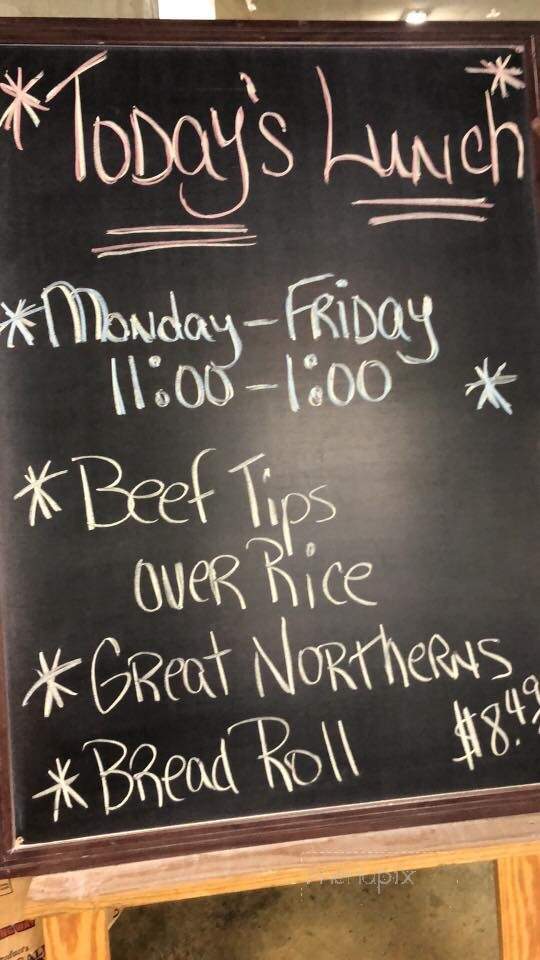 *Today's Lunch*
*Monday - Friday
11:00 - 1:00 *
*Beef Tips
over Rice
*Great Northerns
*Bread Roll $8.49